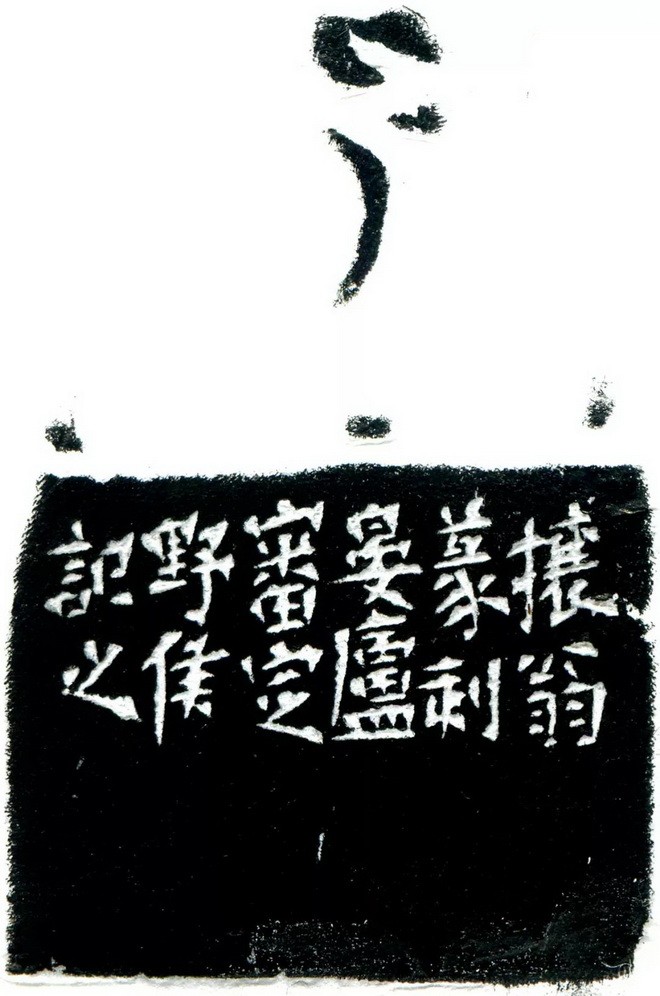 攘翁
篆刻
晏廬
審定
野侯
記之